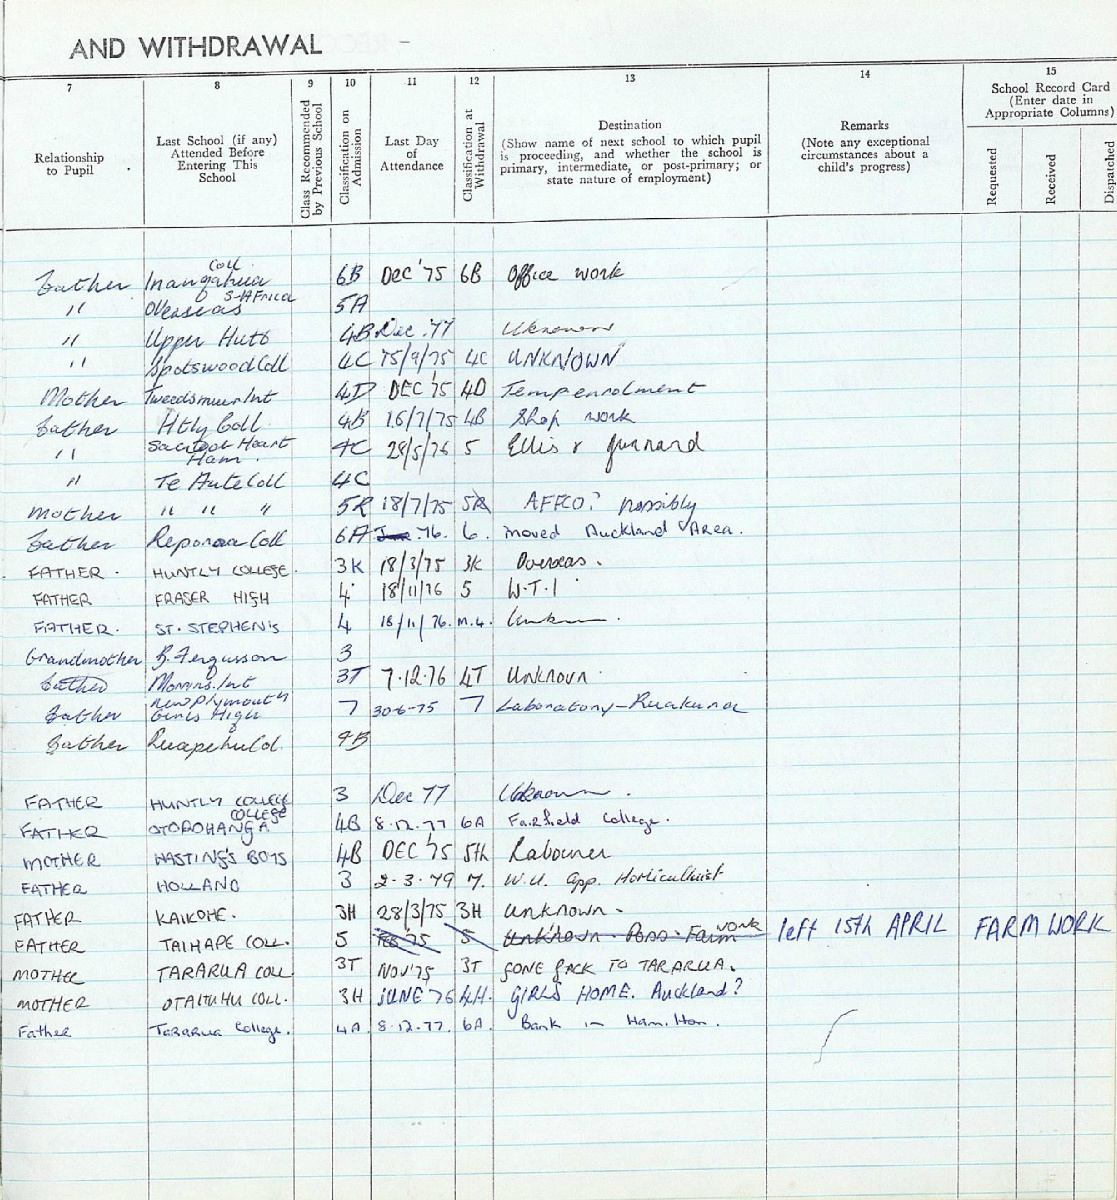 AND WITHDRAWAL
7 8 9 10 11 12 13 14 15
Relationship to Pupil
Last School (if any) Attended Before Entering This School
Class Recommended by Previous School
Classification on Admission
Last Day of Attendance
Classification at Withdrawal
Destination
(Show name of next school to which pupil is proceeding, and whether the school is primary, intermediate, or post-primary; or state nature of employment)
Remarks
(Note any exceptional circumstances about a child's progress)
School Record Card
(Enter date in Appropriate Columns)
Requested
Received
Dispatched
Father Inangahua Coll 6B Dec '75 6B Office work
" Overseas S. Africa 5A
" Upper Hutt 4B Dec. 77 Uknown
" Spotswood Coll 4C 15/9/75 4C UNKNOWN
Mother Tweedsmuir Int 4D DEC '75 4D Temp enrolment
Father Htly Coll. 4B 16/7/75 4B Shop work
" Sacred Heart Ham. 4C 28/5/76 5 Ellis &
" Te Aute Coll 4C
Mother " " " 5R 18/7/75 5R AFFCO? possibly
Father Reporoa Coll 6A 76. 6. moved Auckland Area.
FATHER. HUNTLY COLLEGE. 3K 18/3/75 3K Overseas.
FATHER FRASER HIGH 4 18/11/76 5 W.T.I
FATHER. ST. STEPHEN'S 4 18/11/76. M.4.
Grandmother B. Fergusson 3
Father Morrins. Int 3T 7.12.76 4T Unknown.
Father New Plymouth Girls High 7 30-6-75 7 Laboratory - Ruakura
Father Ruapehu Col. 4B
FATHER HUNTLY COLLEGE 3 Dec 77 Uknown.
FATHER OTOROHANGA COLLEGE 4B 8.12.77 6A Fairfield College.
MOTHER HASTING'S BOYS 4B DEC '75 5th Labourer
FATHER HOLLAND 3 2-3-79 7. W.U. App. Horticulturist
FATHER KAIKOHE. 3H 28/3/75 3H Unknown.
FATHER TAIHAPE COLL. 5 FEB '75 5 Unknown - Poss - Farm work left 15th APRIL FARM WORK
MOTHER TARARUA COLL 3T NOV '75 3T GONE BACK TO TARARUA.
MOTHER OTAHUHU COLL. 3H JUNE 76 4H. GIRLS HOME. Auckland?
Father TARARUA College. 4A. 8.12.77. 6A. Bank in Hamilton.